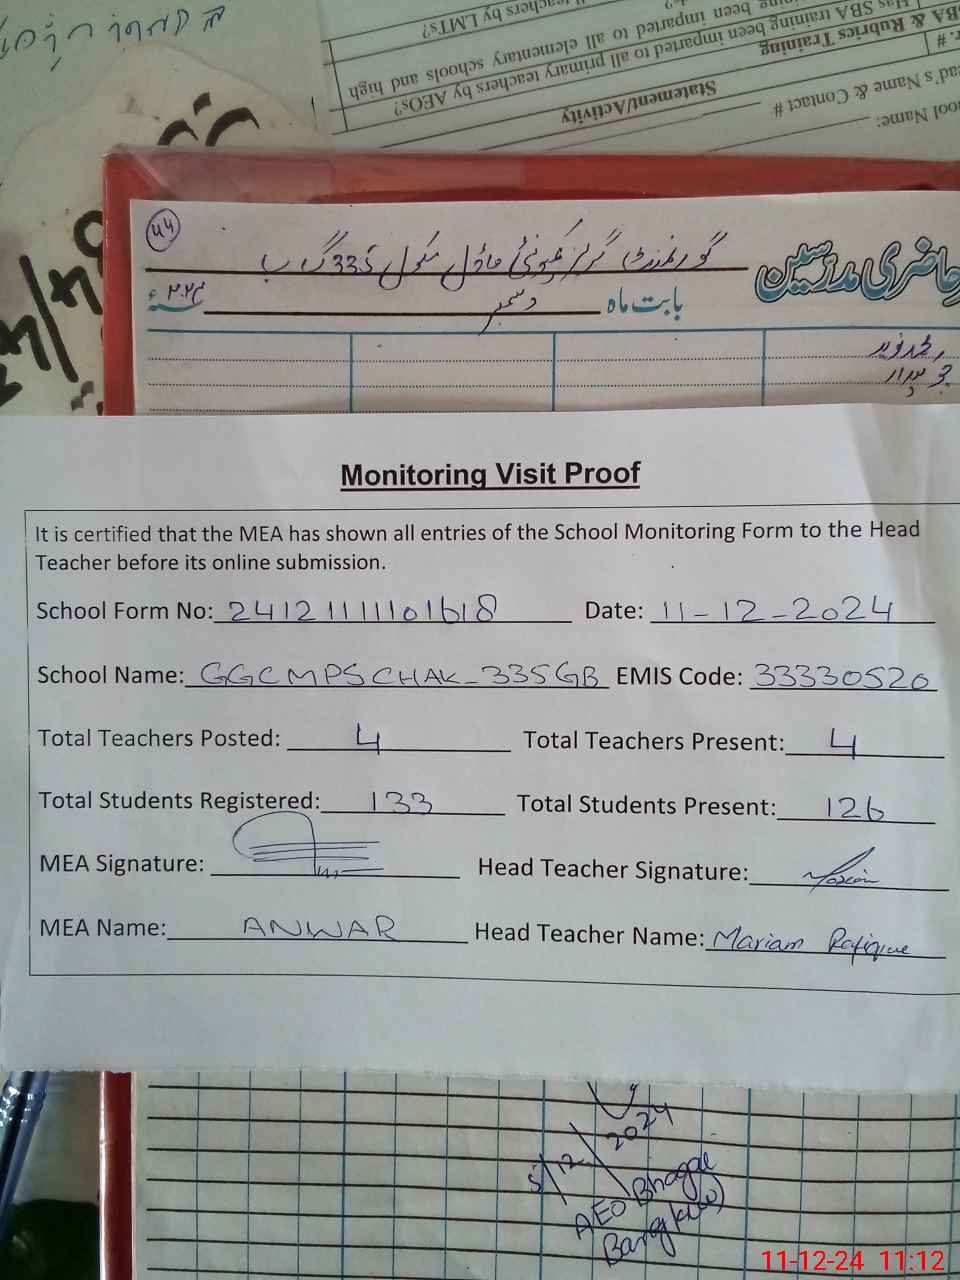 School Name:
Head's Name & Contact #
Sr. # Statement/Activity
SBA & Rubrics Training
Has SBA training been imparted to all primary teachers by AEOs?
Has SBA training been imparted to all elementary schools and high
teachers by LMTs?
۴۴
حاضری مدرسین
گورنمنٹ گرلز کمیونٹی ماڈل سکول 335 گ ب
بابت ماہ دسمبر ۲۰۲۴ء
Monitoring Visit Proof
It is certified that the MEA has shown all entries of the School Monitoring Form to the Head
Teacher before its online submission.
School Form No: 24121111101618 Date: 11-12-2024
School Name: GGCMPS CHAK-335GB EMIS Code: 33330520
Total Teachers Posted: 4 Total Teachers Present: 4
Total Students Registered: 133 Total Students Present: 126
MEA Signature: Head Teacher Signature:
MEA Name: ANWAR Head Teacher Name: Mariam Rafique
5/12/2024
AEO Bhagat
Bangla
11-12-24 11:12